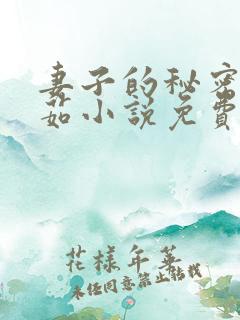 妻子的秘密
茹小说免费
花様年华
未经同意禁止转载